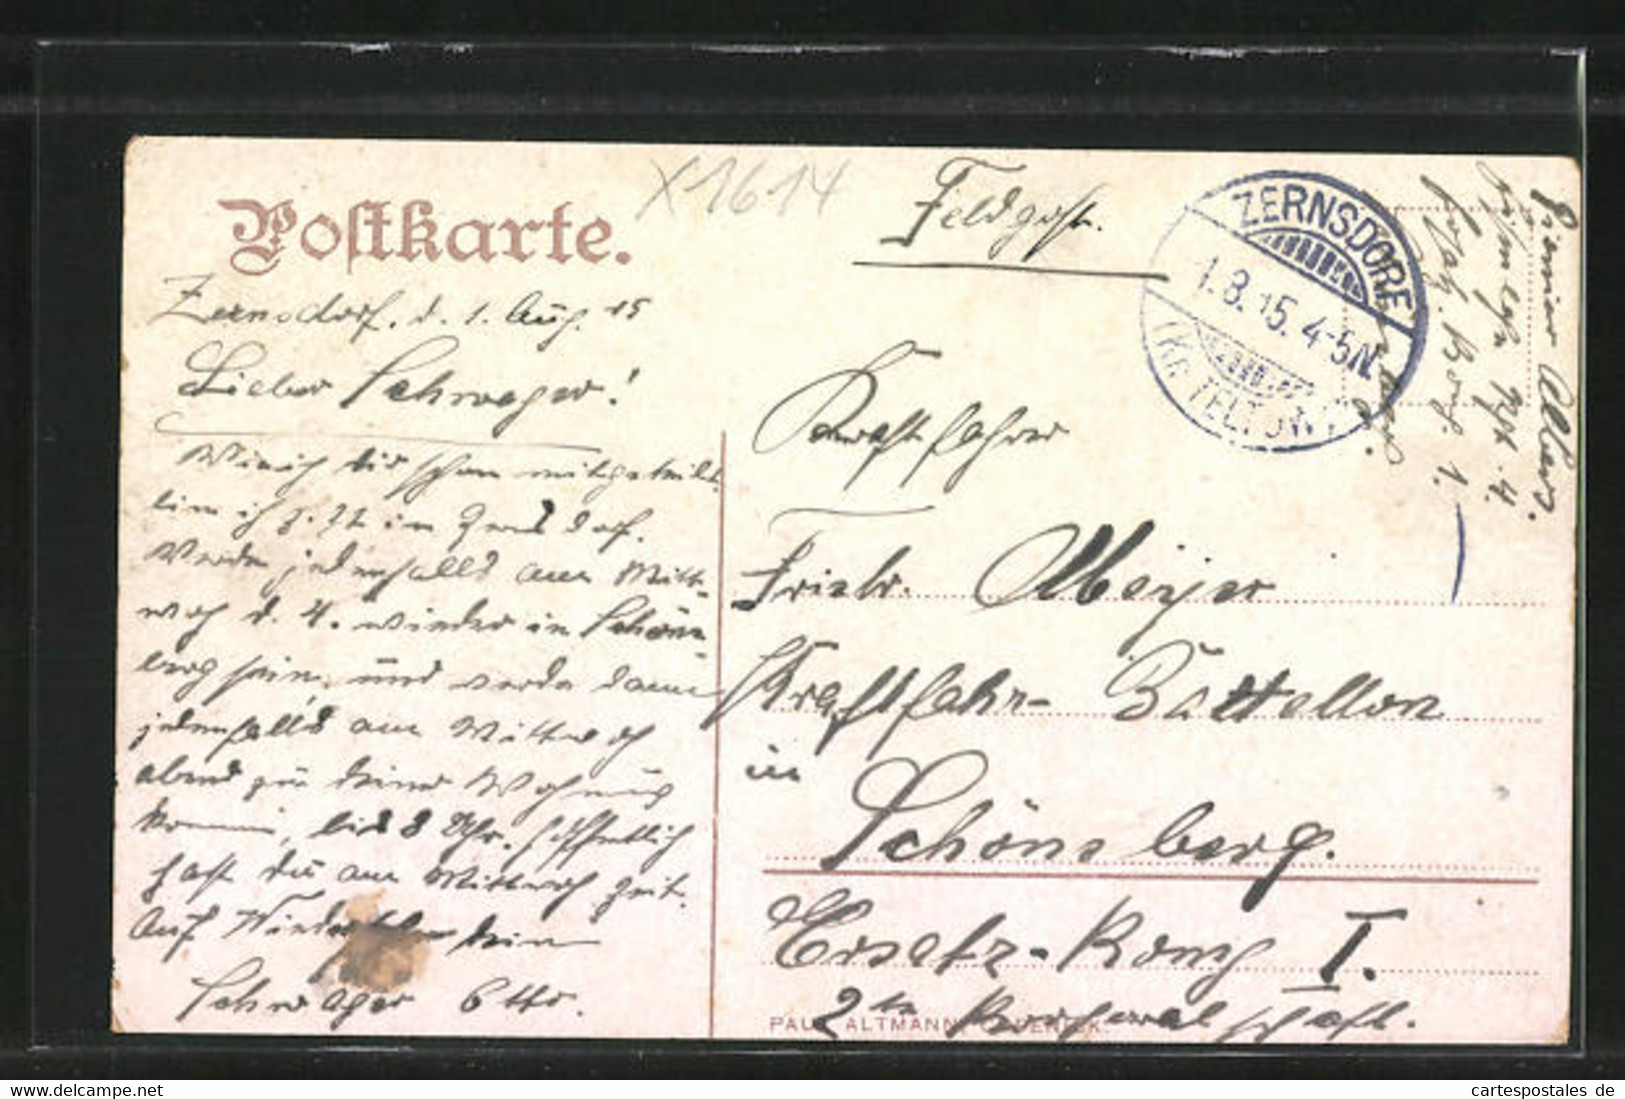 X1614
Postkarte.
Feldpost.
ZERNSDORF
1.8.15. 4-5N.
(Kr. TELTOW)
Pionier Albers.
Zernsdorf. d. 1. Aug. 15
Lieber Schwager!
Wie ich dir schon mitgeteilt
bin ich z. Zt. in Zernsdorf.
Werde jedenfalls am Mitt-
woch d. 4. wieder in Schöne-
berg sein. und werde dann
jedenfalls am Mittwoch
abend zur deiner Wohnung
kommen, bis 8 Uhr. hoffentlich
hast du am Mittwoch zeit.
Auf Wiedersehen dein
Schwager Otto.
Kraftfahrer
Friedr. Meyer
Kraftfahr-Battellon
in
Schöneberg.
Ersatz-Komp I.
2te Korporalschaft.
PAUL ALTMANN, CÖPENICK.
cartespostales de